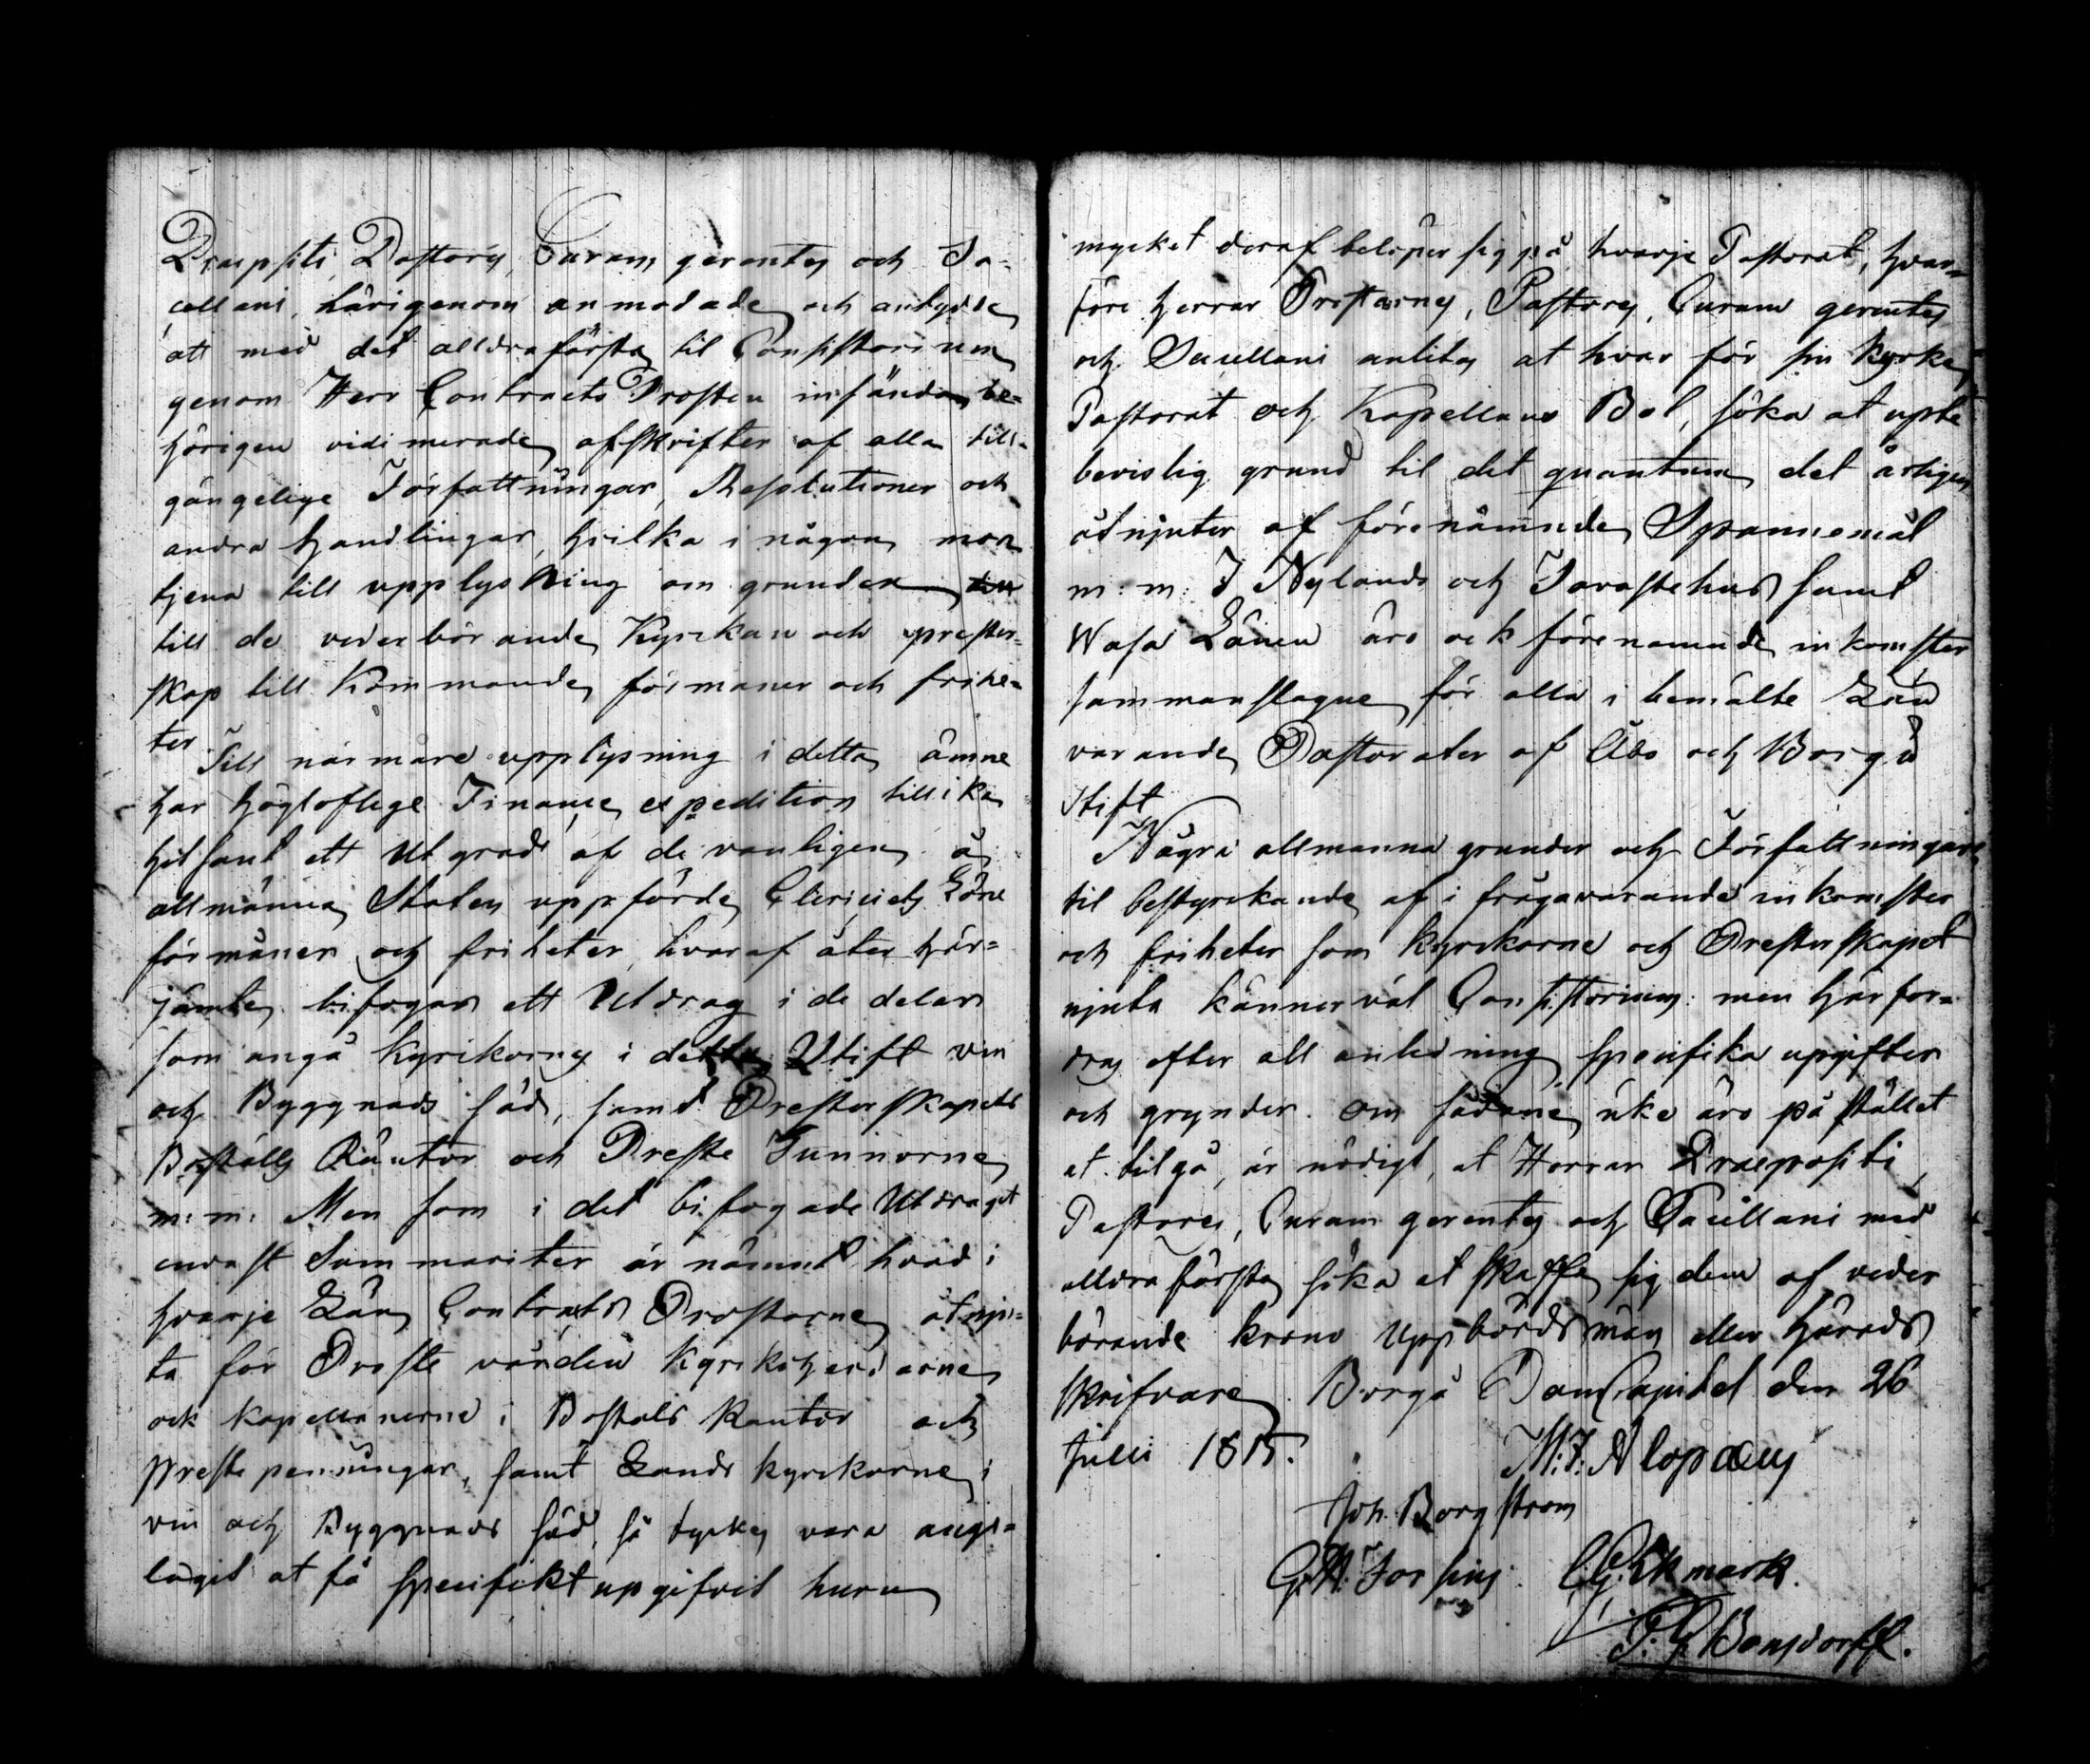 Praepsiti, Pastores, Curam gerentes och Sa-
cellani, härigenom anmodade och antydde
att med det alldraförsta til Consistorium
genom Herr Contracts Prosten insända be-
hörigen vidimerade afskrifter af alla till-
gängelige Författningar, Resolutioner och
andra handlingar, hvilka i någon mon
tjena till upplysning om grunden
till de vederbörande Kyrkan och prester-
skap till kommande förmåner och frihe-
ter
Till närmare upplysning i detta ämne
har högloflige Finance expedition tillika
hitsänt ett Utgrade af de vanligen å
allmänna Staten uppförde Clericiets Löne
förmåner och friheter, hvaraf åter här-
jämte bifogas ett Utdrag i de delar
som angå Kyrkorne i detta Stift vin
och Byggnads säd, samt Presterskapets
Boställs Räntor och Preste Tunnorne
m: m: Men som i det bifogade Utdraget
endast Summariter är nämnt hvad i
hvarje Län Contracts Prostarne åtnju-
ta för Proste värden Kyrkoherdarne
och kapellanerne i Boställs Räntor och
preste penningar, samt Lands kyrkorne i
vin och Byggnads säd, så tyckes vara ange-
läget at få specifikt upgifvet huru
mycket deraf belöper sig på hvarje Pastorat, hvar-
före Herrar Prostarne, Pastores, Curam gerentes
och Sacellani anlitas at hvar för sin Kyrka,
Pastorat och Kapellans Bol, söka at upte
bevislig grund til det quantum det årligen
åtnjuter af förenämnde Spannemål
m: m: I Nylands och Tavastehus samt
Wasa Länen äro ock förenämnde inkomster
sammanslagne för alla i bemälte Län
varande Pastorater af Åbo och Borgå
Stift
Några allmänna grunder och Författningar
til bestyrkande af i fråga varande inkomster
och friheter som kyrkorne och Presterskapet
njuta känner väl Consistorium: men härfor-
dras efter all anledning specifika upgifter
och grunder. Om sådane icke äro på stället
at tilgå, är nödigt, at Herrar Praepositi,
Pastores, Curam gerentes och Sacellani med
alldraförsta söka at skaffa sig dem af veder
börande krono Uppbördsmän eller Härads
skrifvare. Borgå DomCapitel den 26
Julii 1815.
M: J: Alopaeus
Joh. Borgstrom
G. A. Forsius. C. G. Ekmark.
P. G. Bonsdorff.